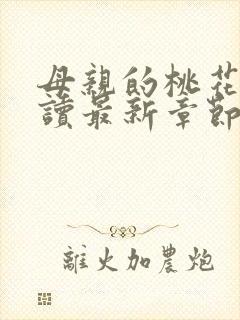 母親的桃花
讀最新章節
離火加農炮